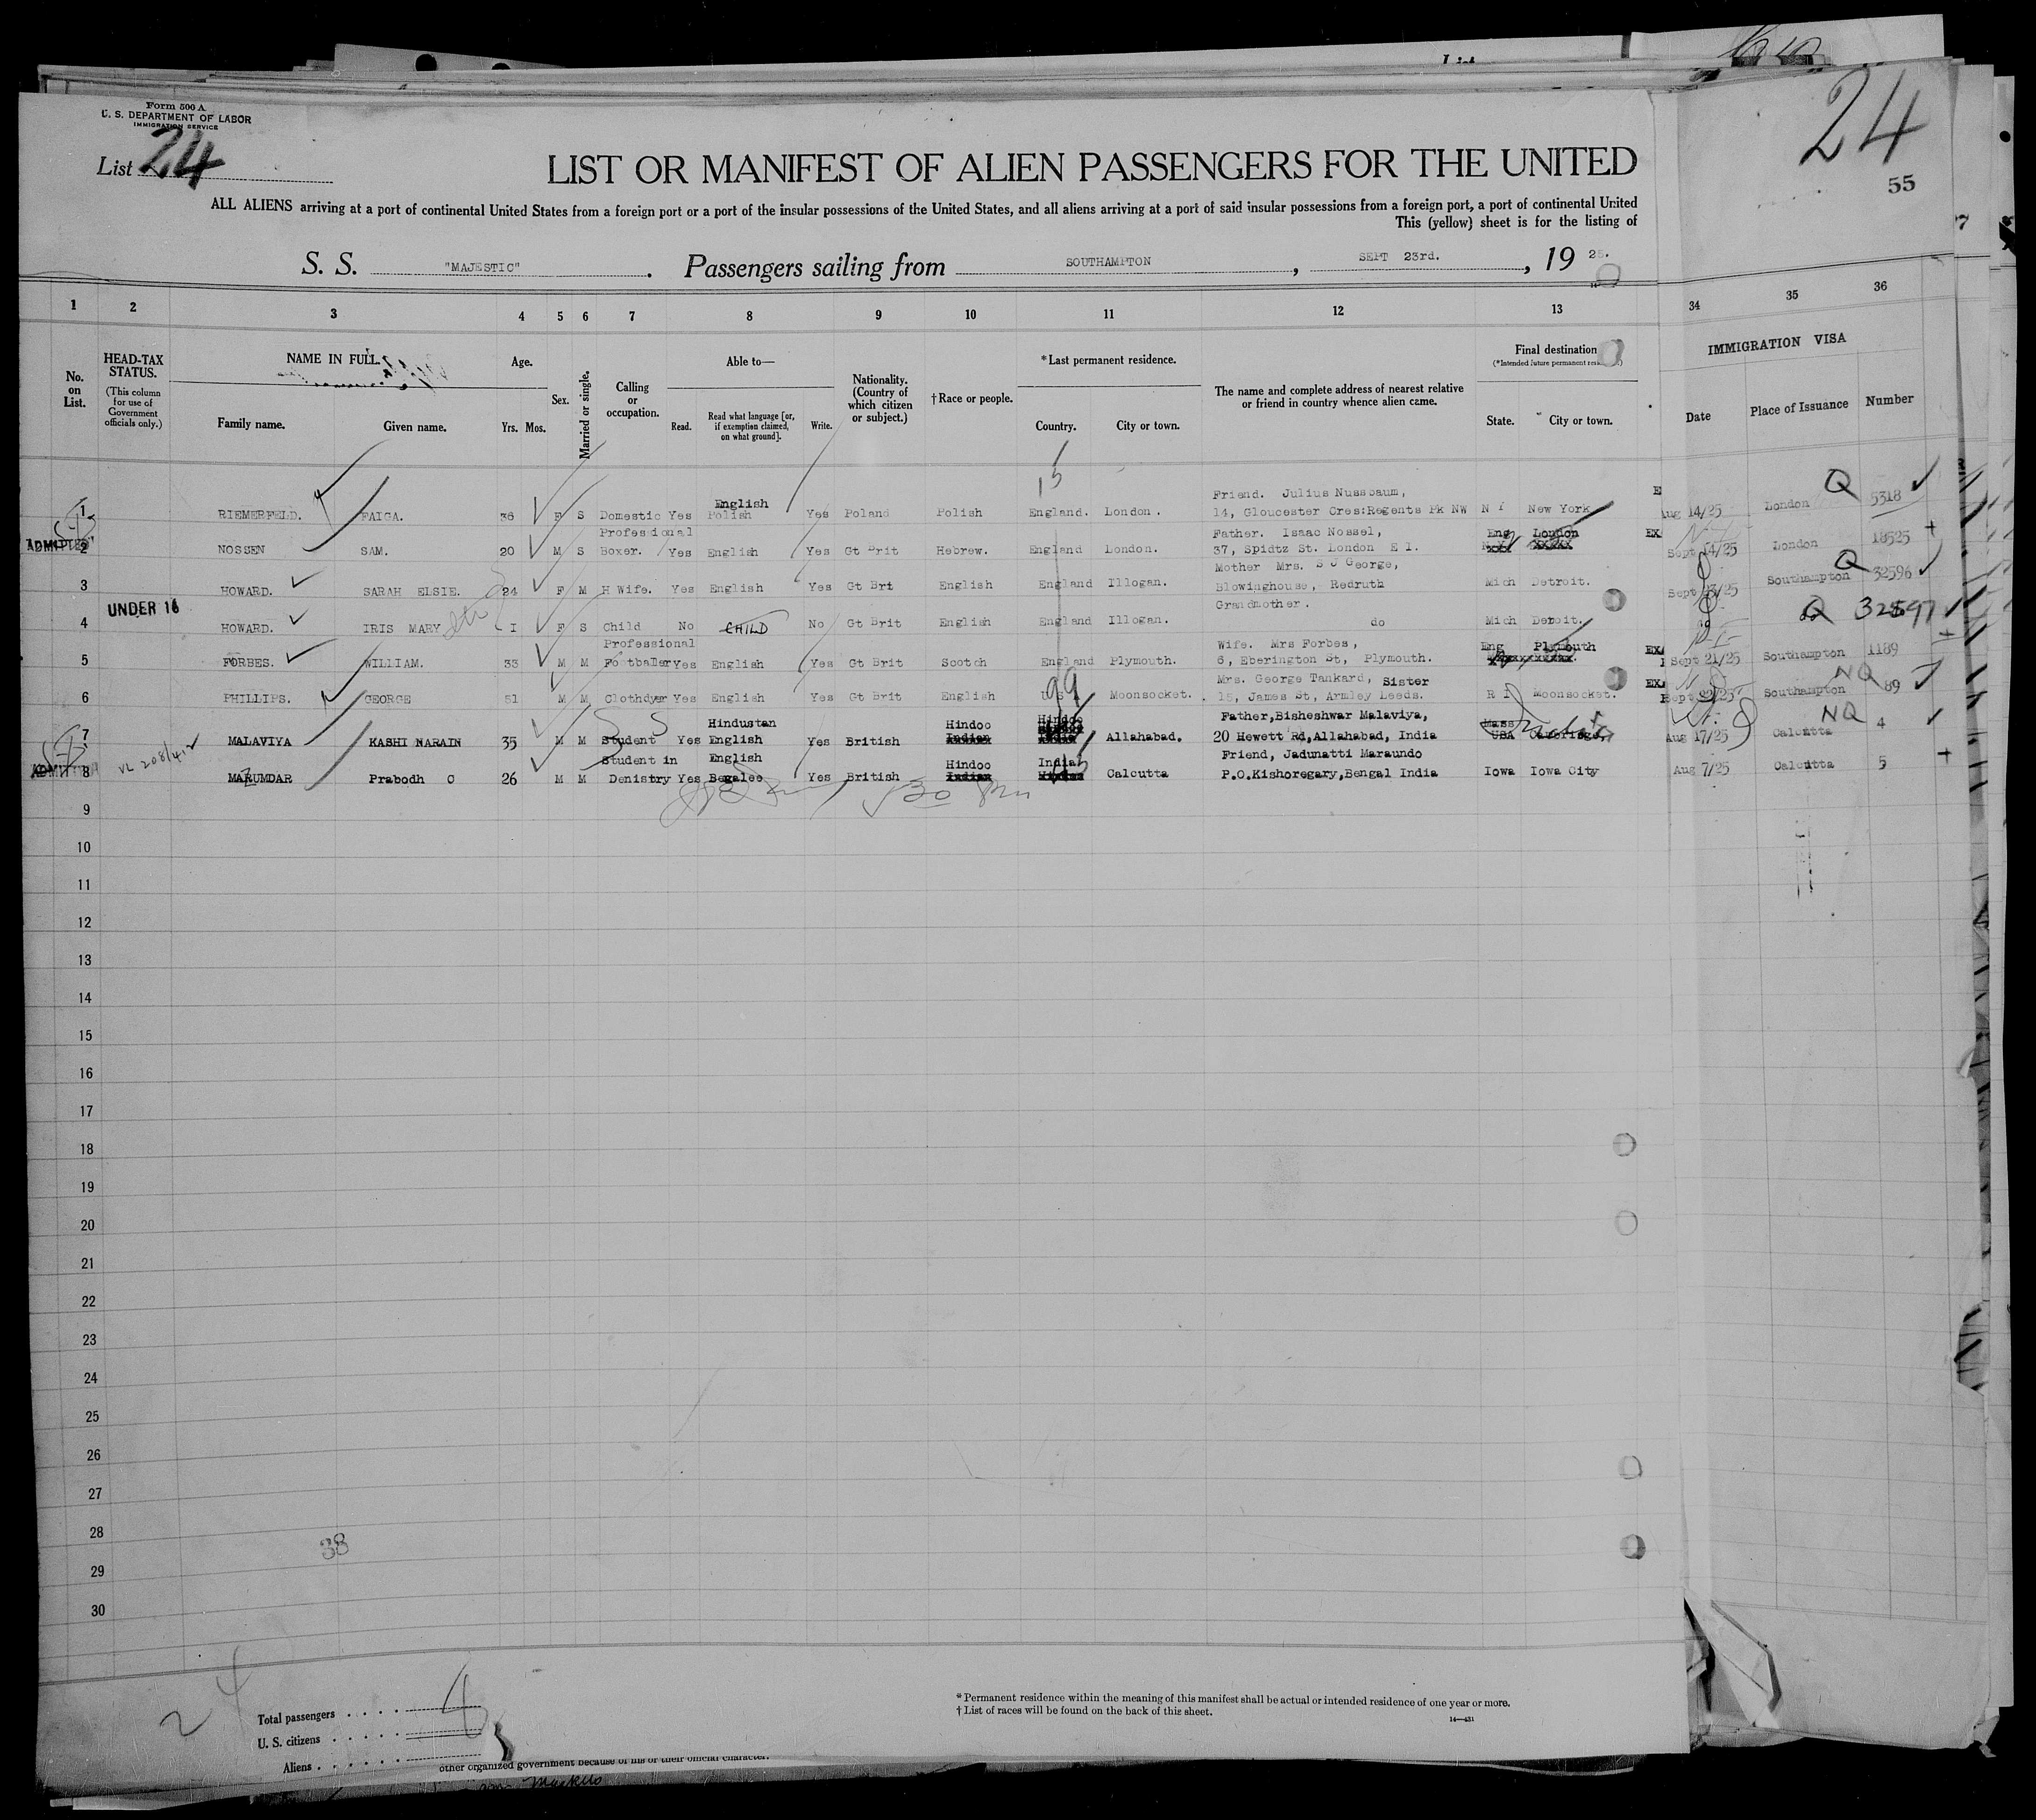 Form 500 A
U. S. DEPARTMENT OF LABOR
IMMIGRATION SERVICE
List 24
24
55
LIST OR MANIFEST OF ALIEN PASSENGERS FOR THE UNITED
ALL ALIENS arriving at a port of continental United States from a foreign port or a port of the insular possessions of the United States, and all aliens arriving at a port of said insular possessions from a foreign port, a port of continental United
This (yellow) sheet is for the listing of
S. S. "MAJESTIC". Passengers sailing from SOUTHAMPTON, SEPT 23rd., 19 25.
1 2 3 4 5 6 7 8 9 10 11 12 13 34 35 36
No. on List.
HEAD-TAX STATUS.
(This column for use of Government officials only.)
NAME IN FULL
Family name. Given name.
Age.
Yrs. Mos.
Sex.
Married or single.
Calling or occupation.
Able to—
Read. Read what language [or, if exemption claimed, on what ground]. Write.
Nationality. (Country of which citizen or subject.)
†Race or people.
*Last permanent residence.
Country. City or town.
The name and complete address of nearest relative or friend in country whence alien came.
Final destination
(*Intended future permanent residence.)
State. City or town.
IMMIGRATION VISA
Date Place of Issuance Number
15
English Friend. Julius Nussbaum, Q
1 RIEMERFELD. FAIGA. 36 F S Domestic Yes Polish Yes Poland Polish England. London. 14, Gloucester Cres:Regents Pk NW N Y New York Aug 14/25 London 5318
Professional Father. Isaac Nossel, Eng London
ADMITTED 2 NOSSEN SAM. 20 M S Boxer. Yes English Yes Gt Brit Hebrew. England London. 37, Spidtz St. London E 1. Sept 14/25 London 18525
Mother Mrs. S J George, Q
3 HOWARD. SARAH ELSIE. 24 F M H Wife. Yes English Yes Gt Bri English England Illogan. Blowinghouse, Redruth Mich Detroit. Sept 23/25 Southampton 32596
UNDER 16 Grandmother.
4 HOWARD. IRIS MARY 1 F S Child No CHILD No Gt Brit English England Illogan. do Mich Detroit. Q 32597
Professional Wife. Mrs Forbes, Eng Plymouth
5 FORBES. WILLIAM. 33 M M Footballer Yes English Yes Gt Brit Scotch England Plymouth. 6, Eberington St, Plymouth. Sept 21/25 Southampton 1189
99 Mrs. George Tankard, Sister NQ
6 PHILLIPS. GEORGE 51 M M Clothdyer Yes English Yes Gt Brit English U S A Moonsocket. 15, James St, Armley Leeds. R I Moonsocket. Sept 22/25 Southampton 89
Hindustan Hindoo Father,Bisheshwar Malaviya, Mass NQ
7 MALAVIYA KASHI NARAIN 35 M M Student Yes English Yes British Indian Allahabad. 20 Hewett Rd,Allahabad, India USA Cambridge, Aug 17/25 Calcutta 4
VL 208/412
Student in English Hindoo India Friend, Jadunatti Maraundo
ADMITTED 8 MARUMDAR Prabodh C 26 M M Denistry Yes Begalee Yes British Indian Calcutta P.O.Kishoregary,Bengal India Iowa Iowa City Aug 7/25 Calcutta 5
9
10
11
12
13
14
15
16
17
18
19
20
21
22
23
24
25
26
27
28
38
29
30
24
Total passengers
U. S. citizens
Aliens
*Permanent residence within the meaning of this manifest shall be actual or intended residence of one year or more.
†List of races will be found on the back of this sheet.
14—431
other organized government because of his or their official character.